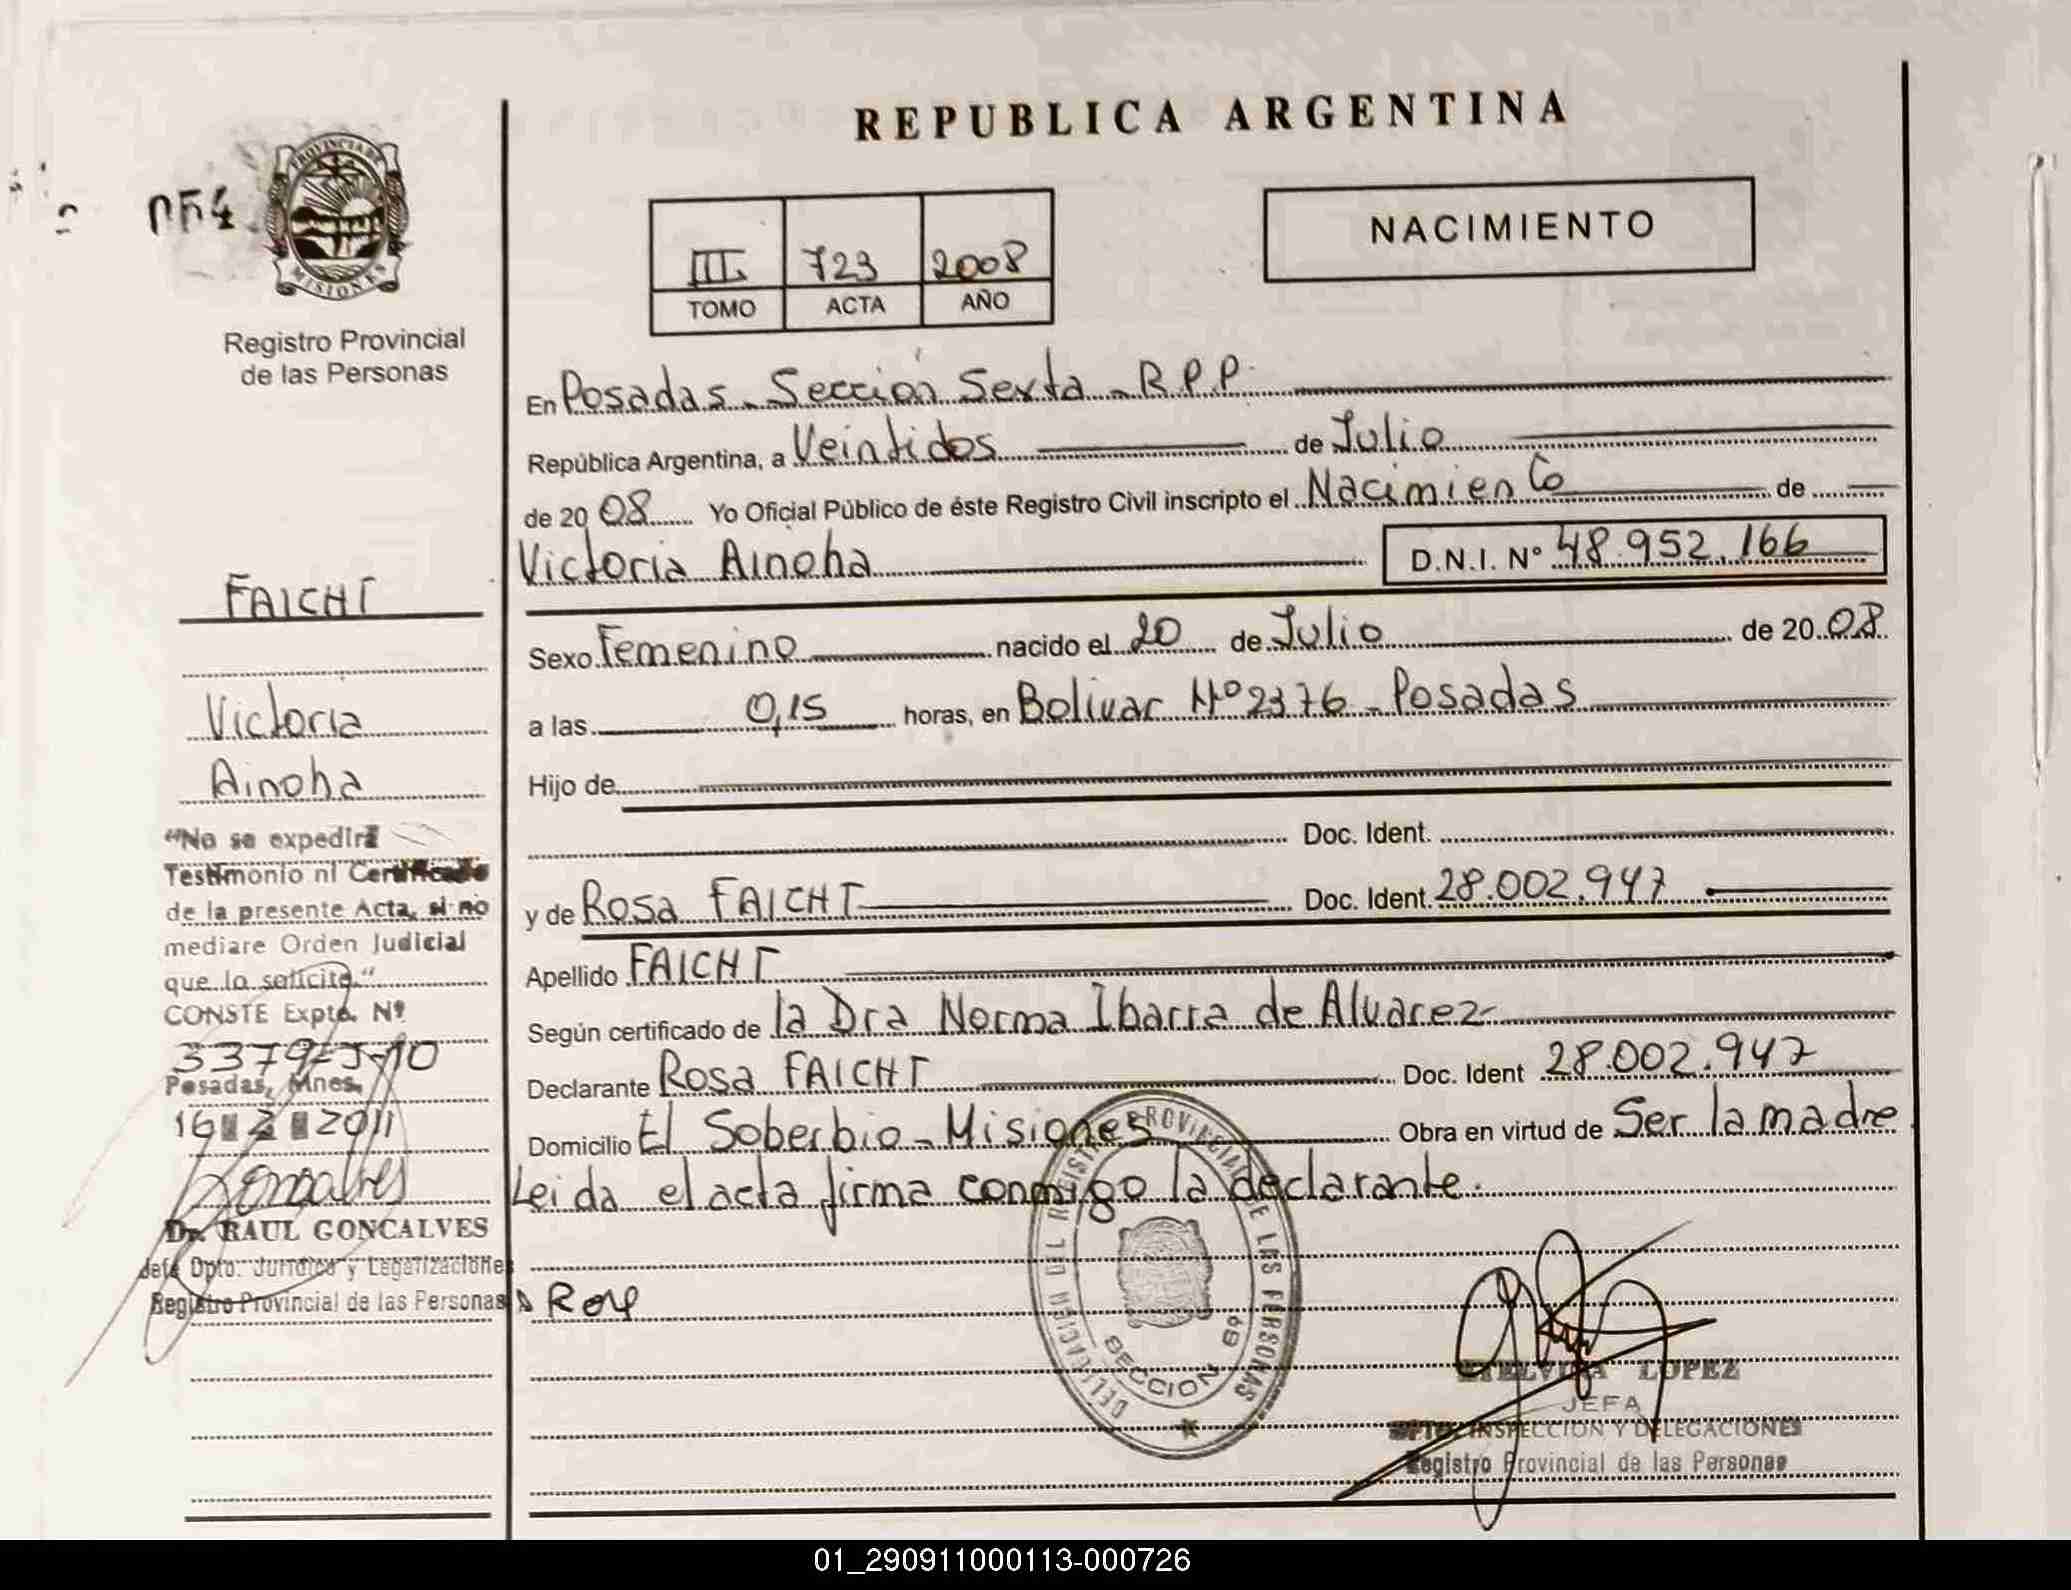 REPUBLICA ARGENTINA
PROVINCIA DE
MISIONES
Registro Provincial
de las Personas
III 723 2008
TOMO ACTA AÑO
NACIMIENTO
En Posadas - Sección Sexta - R.P.P.
República Argentina, a Veintidos de Julio
de 20 08 Yo Oficial Público de éste Registro Civil inscripto el Nacimiento de
Victoria Ainoha D.N.I. Nº 48.952.166
Sexo Femenino nacido el 20 de Julio de 20 08
a las 0,15 horas, en Bolivar Nº 2376 - Posadas
Hijo de
Doc. Ident.
y de Rosa FAICHT Doc. Ident. 28.002.947
Apellido FAICHT
Según certificado de la Dra Norma Ibarra de Alvarez
Declarante Rosa FAICHT Doc. Ident 28.002.947
Domicilio El Soberbio - Misiones Obra en virtud de Ser la madre
Leida el acta firma conmigo la declarante.
FAICHT
Victoria
Ainoha
"No se expedirá
Testimonio ni Certificado
de la presente Acta, si no
mediare Orden Judicial
que lo solicite."
CONSTE Expte. Nº
3379-J-10
Posadas, Mnes,
16 2 2011
Goncalves
Dr. RAUL GONCALVES
Jefe Dpto. Jurídico y Legalizaciones
Registro Provincial de las Personas
DELEGACION DEL REGISTRO PROVINCIAL DE LAS PERSONAS
SECCION 6º
LOPEZ
JEFA
DPTO. INSPECCION Y DELEGACIONES
Registro Provincial de las Personas
01_290911000113-000726